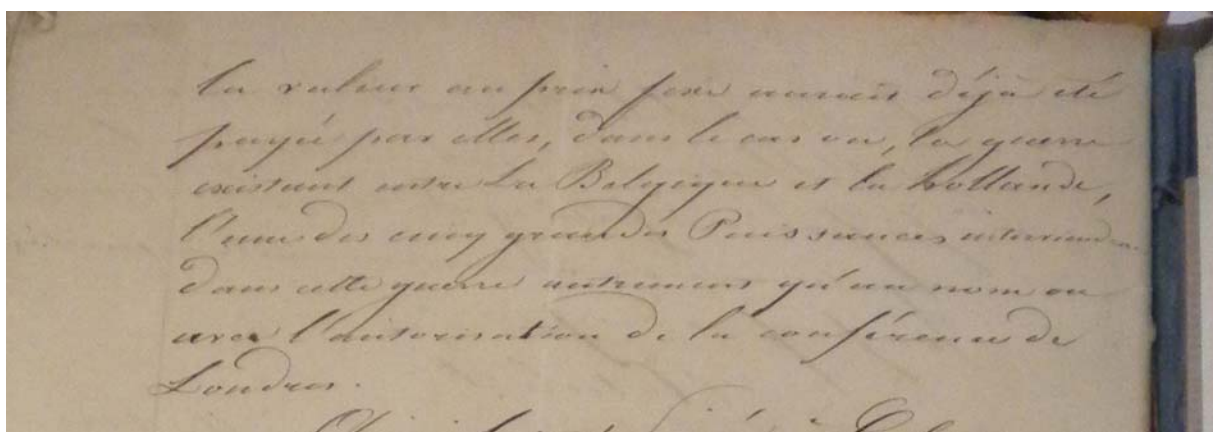 la valeur au prix fixé aurait déjà été
payée par elles, dans le cas où, la guerre
existant entre La Belgique et la hollande,
l'une des cinq grandes Puissances interviendra
dans cette guerre autrement qu'au nom ou
avec l'autorisation de la conférence de
Londres.